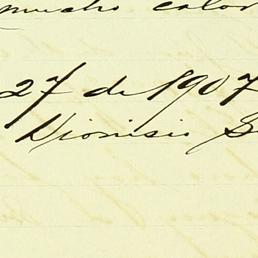 mucho calor
27 de 1907
Dionisio S